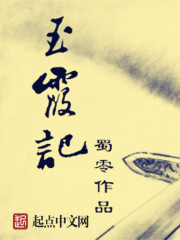 玉
霞
記
蜀零作品
起点中文网